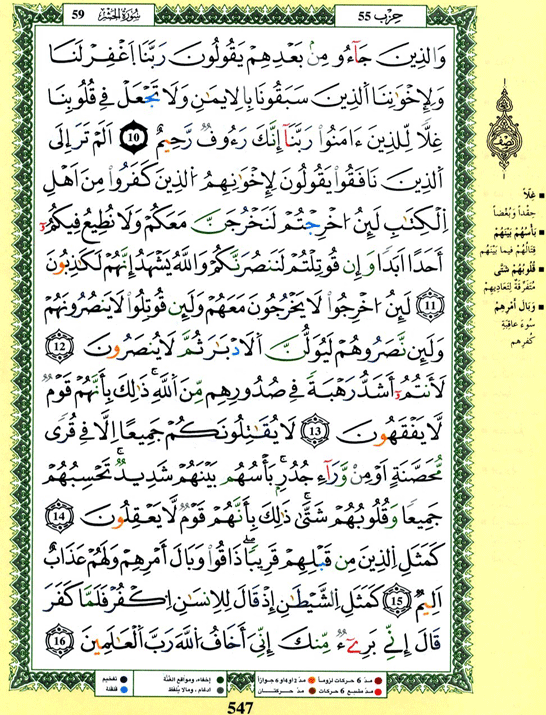 59 سُورَةُ الحَشْر
حِزْب 55
وَالذِينَ جَآءُو مِنۢ بَعْدِهِمْ يَقُولُونَ رَبَّنَا اَ۪غْفِرْ لَنَا
وَلِإِخْوَٰنِنَا اَ۬لذِينَ سَبَقُونَا بِالِايمَٰنِ وَلَا تَجْعَلْ فِے قُلُوبِنَا
غِلّٗا لِّلذِينَ ءَامَنُواْ رَبَّنَآ إِنَّكَ رَءُوفٞ رَّحِيمٌ 10 اَلَمْ تَرَ إِلَى
اَ۬لذِينَ نَافَقُواْ يَقُولُونَ لِإِخْوَٰنِهِمُ اُ۬لذِينَ كَفَرُواْ مِنَ اَهْلِ
اِ۬لْكِتَٰبِ لَئِنُ ا۟خْرِجْتُمْ لَنَخْرُجَنَّ مَعَكُمْ وَلَا نُطِيعُ فِيكُمُۥٓ
أَحَداً اَبَداٗ وَإِن قُوتِلْتُمْ لَنَنصُرَنَّكُمْ وَاللَّهُ يَشْهَدُ إِنَّهُمْ لَكَٰذِبُونَ
11 لَئِنُ ا۟خْرِجُواْ لَا يَخْرُجُونَ مَعَهُمْ وَلَئِن قُوتِلُواْ لَا يَنصُرُونَهُمْ
وَلَئِن نَّصَرُوهُمْ لَيُوَلُّنَّ اَ۬لَادْبَٰرَ ثُمَّ لَا يُنصَرُونَ 12
لَأَنتُمُۥٓ أَشَدُّ رَهْبَةٗ فِے صُدُورِهِم مِّنَ اَ۬للَّهِ ذَٰلِكَ بِأَنَّهُمْ قَوْمٞ
لَّا يَفْقَهُونَ 13 لَا يُقَٰتِلُونَكُمْ جَمِيعاً اِلَّا فِے قُريٗ
مُّحَصَّنَةٍ اَوْ مِنْ وَّرَآءِ جُدُرِۢ بَأْسُهُم بَيْنَهُمْ شَدِيدٞ تَحْسِبُهُمْ
جَمِيعاٗ وَقُلُوبُهُمْ شَتَّيٰ ذَٰلِكَ بِأَنَّهُمْ قَوْمٞ لَّا يَعْقِلُونَ 14
كَمَثَلِ اِ۬لذِينَ مِن قَبْلِهِمْ قَرِيباٗ ذَاقُواْ وَبَالَ أَمْرِهِمْ وَلَهُمْ عَذَابٌ
اَلِيمٞ 15 كَمَثَلِ اِ۬لشَّيْطَٰنِ إِذْ قَالَ لِلِانسَٰنِ اِ۟كْفُرْ فَلَمَّا كَفَرَ
قَالَ إِنِّے بَرِےٓءٞ مِّنكَ إِنِّيَ أَخَافُ اُ۬للَّهَ رَبَّ اَ۬لْعَٰلَمِينَ 16
نصف
غِلّاً
حِقْداً وَبُغْضاً
بَأْسُهُمْ بَيْنَهُمْ
قِتَالُهُمْ فِيمَا بَيْنَهُمْ
قُلُوبُهُمْ شَتَّى
مُتَفَرِّقَةٌ لِتَعَادِيهِمْ
وَبَالَ أَمْرِهِمْ
سُوءَ عَاقِبَةِ
كُفْرِهِم
مدّ 6 حركات لزوماً مدّ 2 أو 4 أو 6 جوازاً
مدّ مشبع 6 حركات مدّ حركتان
إخفاء، ومواقع الغُنَّة
إدغام، وما لا يُلفظ
تفخيم
قلقلة
547